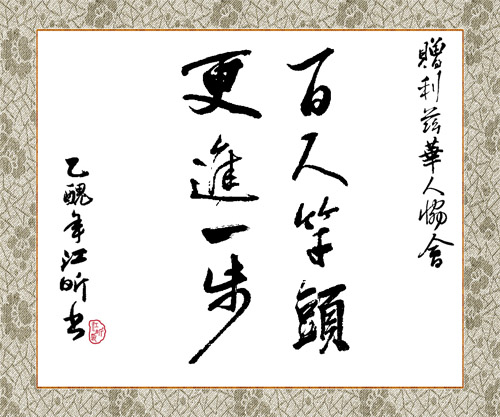 贈利茲華人恊會
百尺竿頭
更進一步
乙醜年江昕书